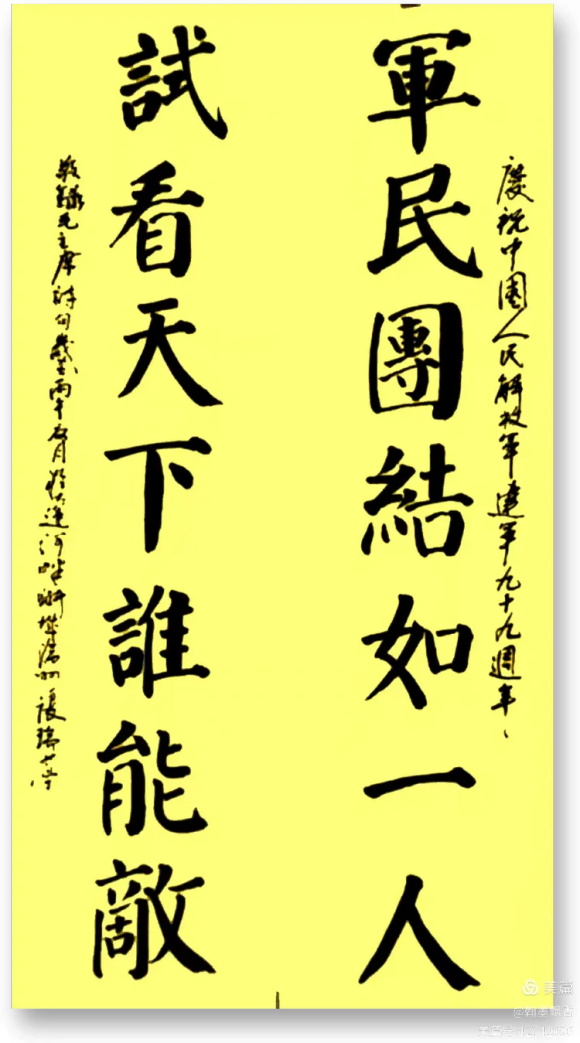 慶祝中國人民解放軍建軍九十九週年
軍民團結如一人
試看天下誰能敵
敬錄毛主席詩句歲在丙午
美篇